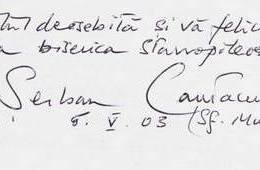 deosebită și vă felic
biserica stavropoleos
Șerban Cantacu
5. V. 03 (Sf. Mu